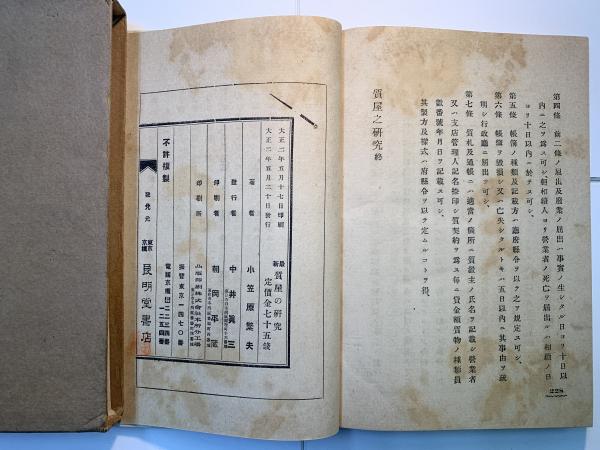 第四條　前二條ノ屆出及廢業ノ屆出ハ事實ノ生シタル日ヨリ十日以
內ニ之ヲ爲スヘシ但相續人ヨリ營業者ノ死亡ヲ屆出ルハ相續ノ日
ヨリ十日以內ニ於テスヘシ
第五條　帳簿ノ種類及記載方ハ廳府縣令ヲ以テ之ヲ規定スヘシ
第六條　帳簿ヲ毀損シ又ハ亡失シタルトキハ五日以內ニ其事由ヲ疏
明シ行政廳ニ屆出ツヘシ
第七條　質札及通帳ニハ適當ノ個所ニ質置主ノ氏名ヲ記載シ營業者
又ハ支店管理人記名捺印シ質契約ヲ爲ス每ニ貸金額質物ノ種類員
數番號年月日ヲ記載スヘシ
其製方及樣式ハ府縣令ヲ以テ定ムルコトヲ得
質屋之硏究 終
228
大正二年五月十七日印刷
大正二年五月二十日發行
最新 質屋の硏究
定價金七十五錢
著者 小笠原
發行者 中井 三
印刷者 朝岡平藏
印刷所
不許複製
發兌元 東京京橋 良明堂書店
振替東京一四七〇番
電話京橋